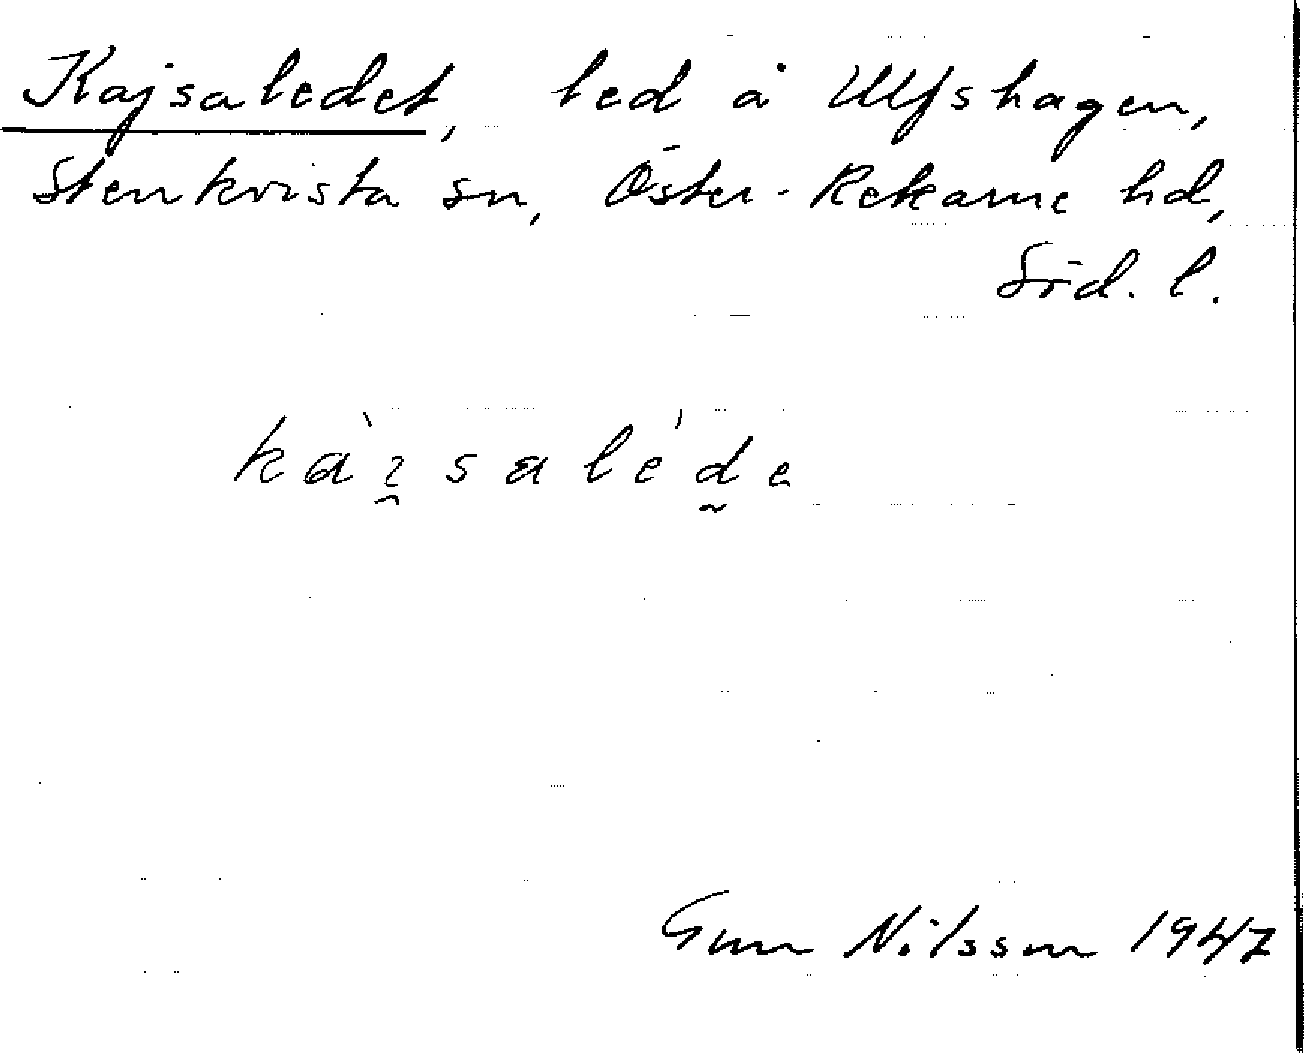 Kajsaledet, led å Ulfshagen,
Stenkvista sn, Öster-Rekarne hd,
Söd. l.
kàɪ̯salé'd̰e
Gun Nilsson 1947